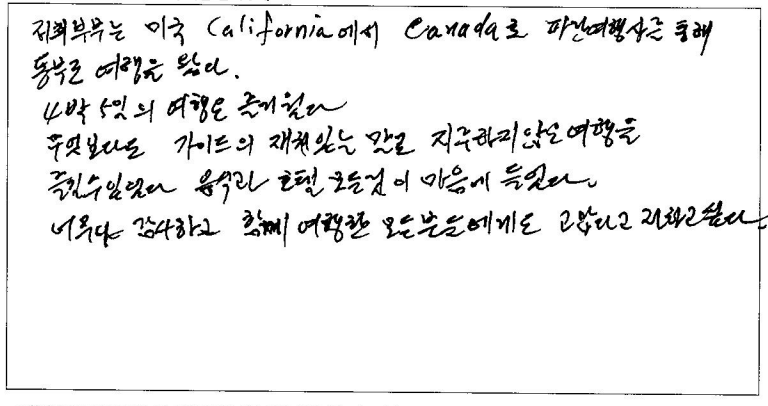 저희부부는 미국 California에서 Canada로 파란여행사를 통해
동부로 여행을 왔다.
4박 5일의 여행은 즐거웠다
무엇보다도 가이드의 재치있는 말로 지루하지않은여행을
즐길수있었다 음식과 호텔 모든것이 마음에 들었다.
너무나 감사하고 함께 여행한 모든분들에게도 고맙다고 전하고싶다.